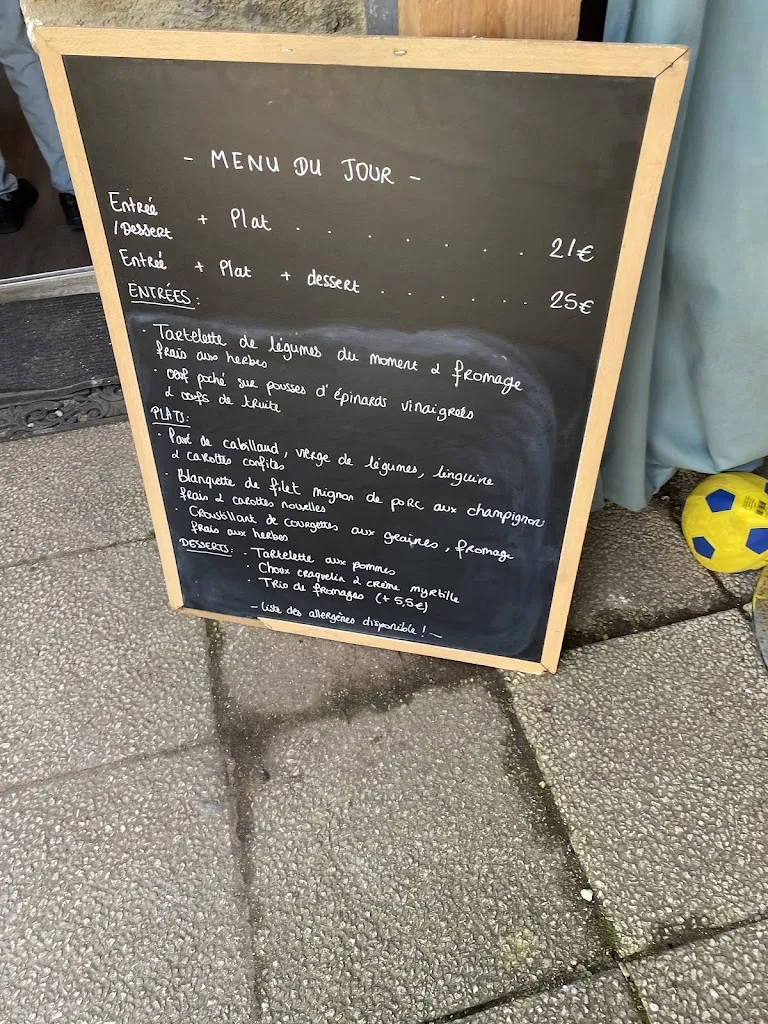 - MENU DU JOUR -
Entrée
/Dessert + Plat . . . . . . . . 21€
Entrée + Plat + dessert . . . . . . . 25€
ENTRÉES :
· Tartelette de légumes du moment & fromage
frais aux herbes
· oeuf poché sur pousses d'épinards vinaigrées
& oeufs de truite
PLATS :
· Pavé de cabillaud, vierge de légumes, linguine
& carottes confites
· Blanquette de filet mignon de porc aux champignons
frais & carottes nouvelles
· Croustillant de courgettes aux graines, fromage
frais aux herbes
DESSERTS : · Tartelette aux pommes
· Choux craquelin & crème myrtille
· Trio de fromages (+ 5,5€)
- Liste des allergènes disponible ! -